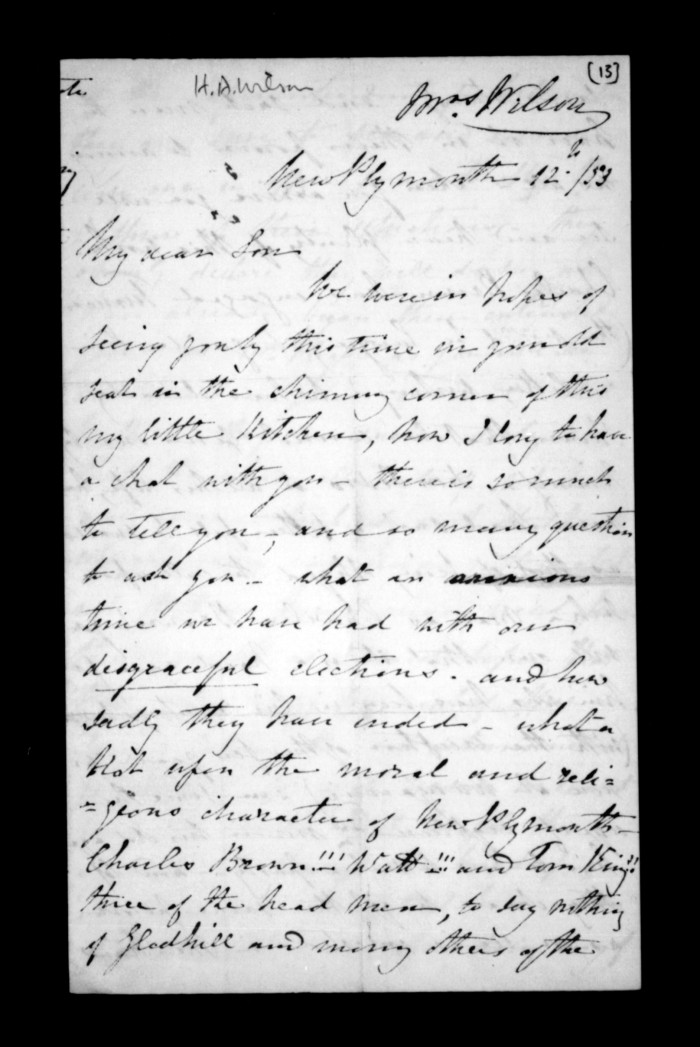 [13]
H. A. Wilson
Mrs Wilson
New Plymouth 12th /53
My dear Son
We were in hopes of
seeing you by this time in your old
seat in the chimney corner of this
my little Kitchen, how I long to have
a chat with you – there is so much
to tell you, and so many question
to ask you – what an anxious
time we have had with our
disgraceful elections. and how
sadly they have ended – what a
blot upon the moral and reli=
=geous character of New Plymouth –
Charles Brown!!! Watt!!! and Tom King!!
three of the head men, to say nothing
of Gledhill and many others of the